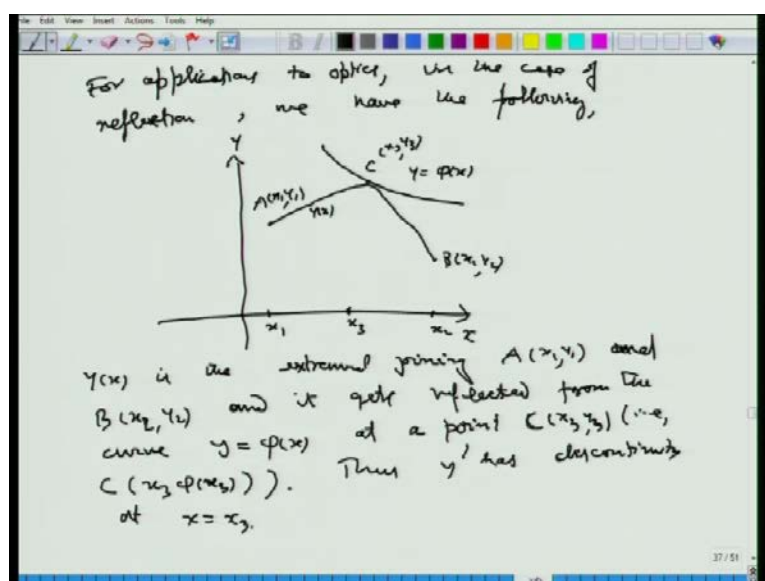 File Edit View Insert Actions Tools Help
For applications to optics, in the case of
reflection, we have the following,
Y
C (x3, y3)
y = φ(x)
A(x1, y1)
y(x)
B(x2, y2)
x1 x3 x2 x
y(x) is the extremal joining A(x1, y1) and
B(x2, y2) and it gets reflected from the
curve y = φ(x) at a point C(x3, y3) (i.e,
C (x3 φ(x3))). Thus y' has discontinuity
at x = x3.
37/51